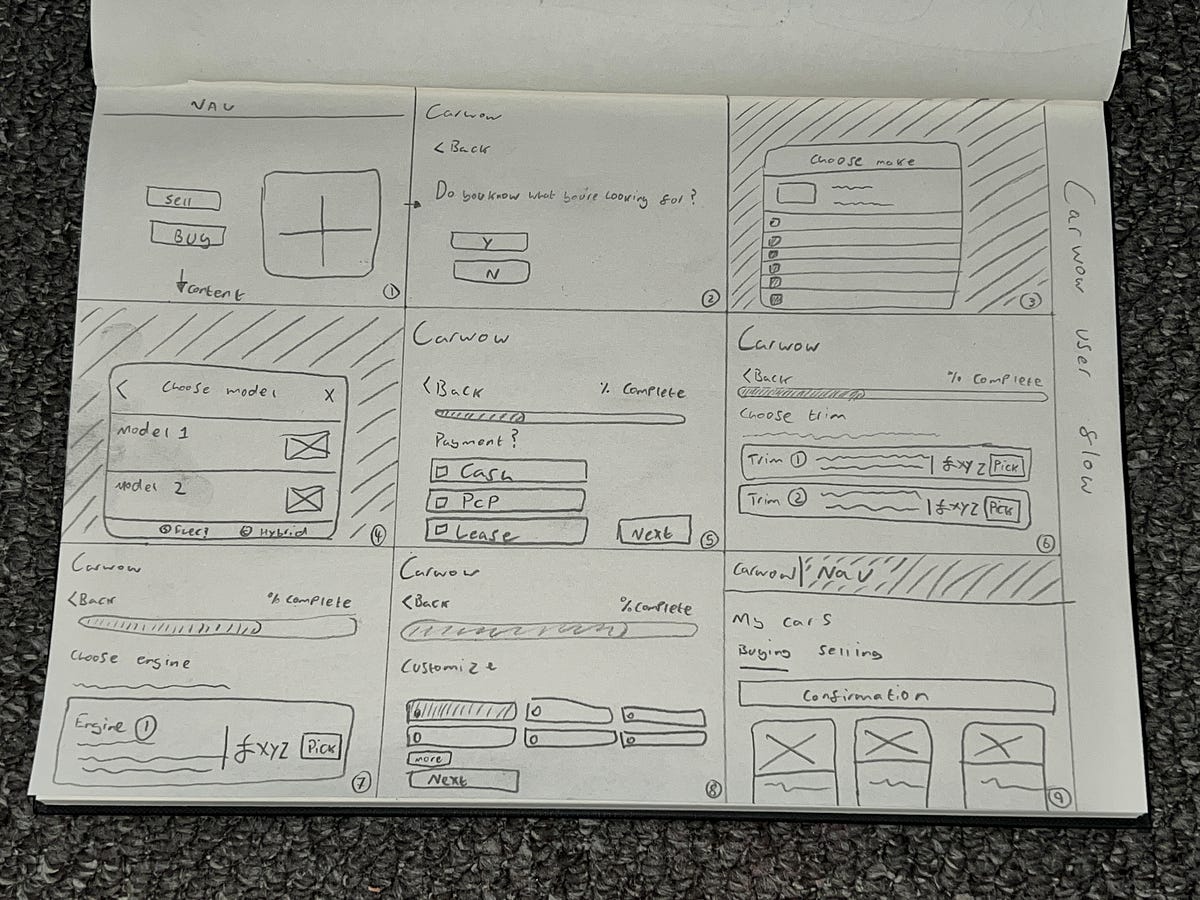 NAV
Sell
Buy
Content
①
Carwow
< Back
Do you know what you're looking for?
Y
N
②
Choose make
③
Carwow user flow
< Choose model X
Model 1
Model 2
Elec? Hybrid
④
Carwow
< Back % Complete
Payment?
Cash
PCP
Lease
Next
⑤
Carwow
< Back % Complete
Choose trim
Trim ① £XYZ Pick
Trim ② £XYZ Pick
⑥
Carwow
< Back % Complete
Choose engine
Engine ①
£XYZ Pick
⑦
Carwow
< Back % Complete
Customize
more
Next
⑧
Carwow Nav
My cars
Buying Selling
Confirmation
⑨